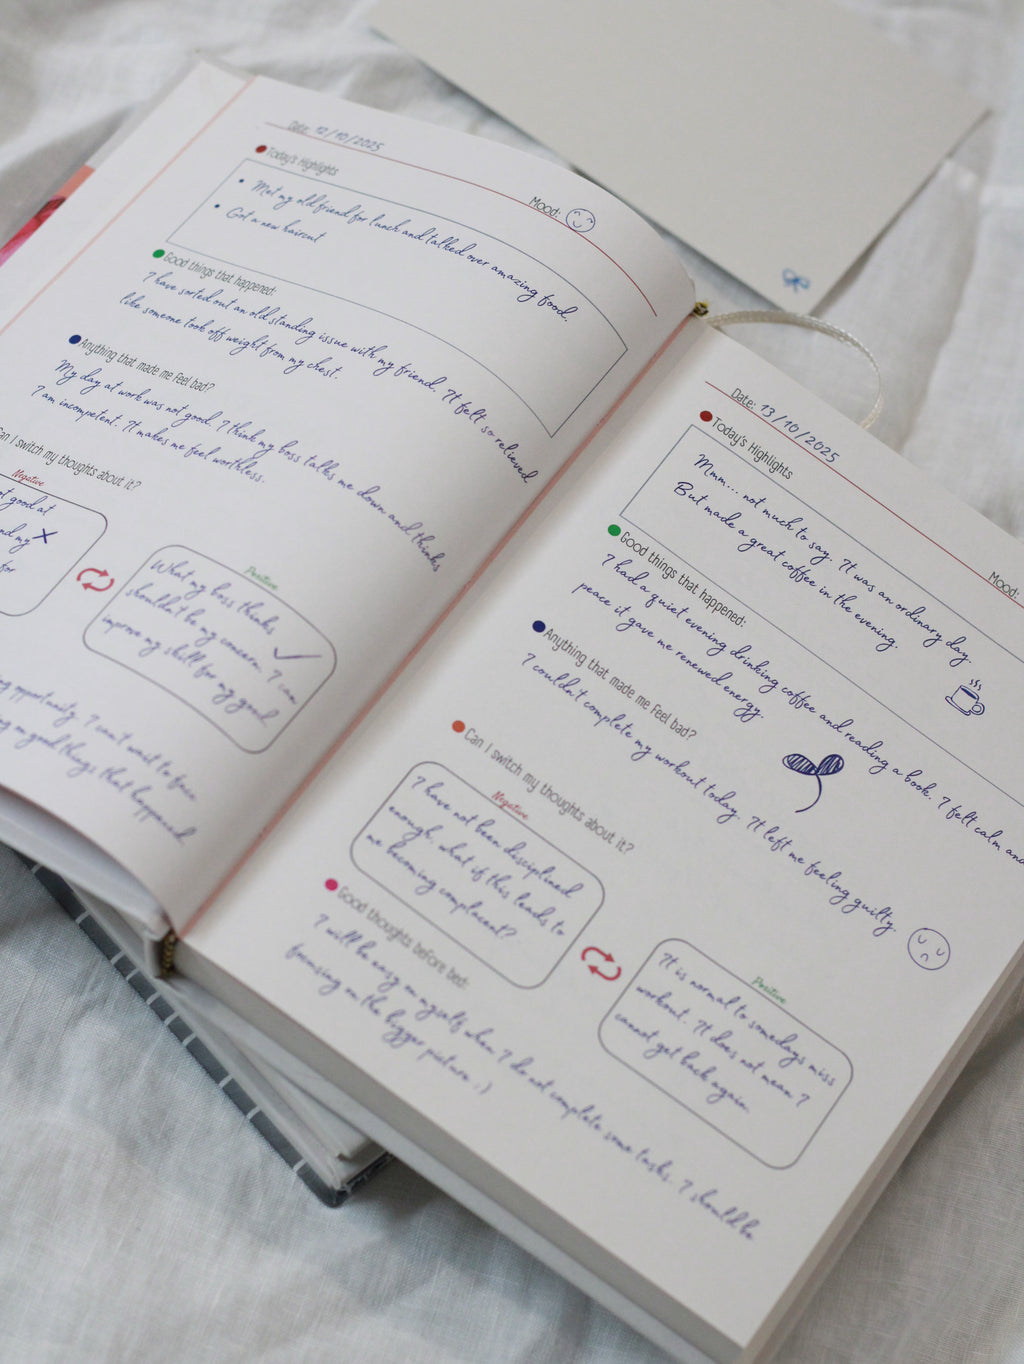 Date: 12/10/2025
Mood:
Today's Highlights
• Met my old friend for lunch and talked over amazing food.
• Got a new haircut
Good things that happened:
I have sorted out an old standing issue with my friend. It felt so relieved
like someone took off weight from my chest.
Anything that made me feel bad?
My day at work was not good. I think my boss talks me down and thinks
I am incompetent. It makes me feel worthless.
Can I switch my thoughts about it?
Negative
not good at
and my
for
Positive
What my boss thinks
shouldn't be my concern. I can
improve my skill for my good.
opportunity. I can't wait to face
on good things that happened
Date: 13/10/2025
Mood:
Today's Highlights
Mmm... not much to say. It was an ordinary day.
But made a great coffee in the evening.
Good things that happened:
I had a quiet evening drinking coffee and reading a book. I felt calm and
peace it gave me renewed energy.
Anything that made me feel bad?
I couldn't complete my workout today. It left me feeling guilty.
Can I switch my thoughts about it?
Negative
I have not been disciplined
enough. what if this leads to
me becoming complacent?
Positive
It is normal to somedays miss
workout. It does not mean I
cannot get back again.
Good thoughts before bed:
I will be easy on myself when I do not complete some tasks. I should be
focusing on the bigger picture :)